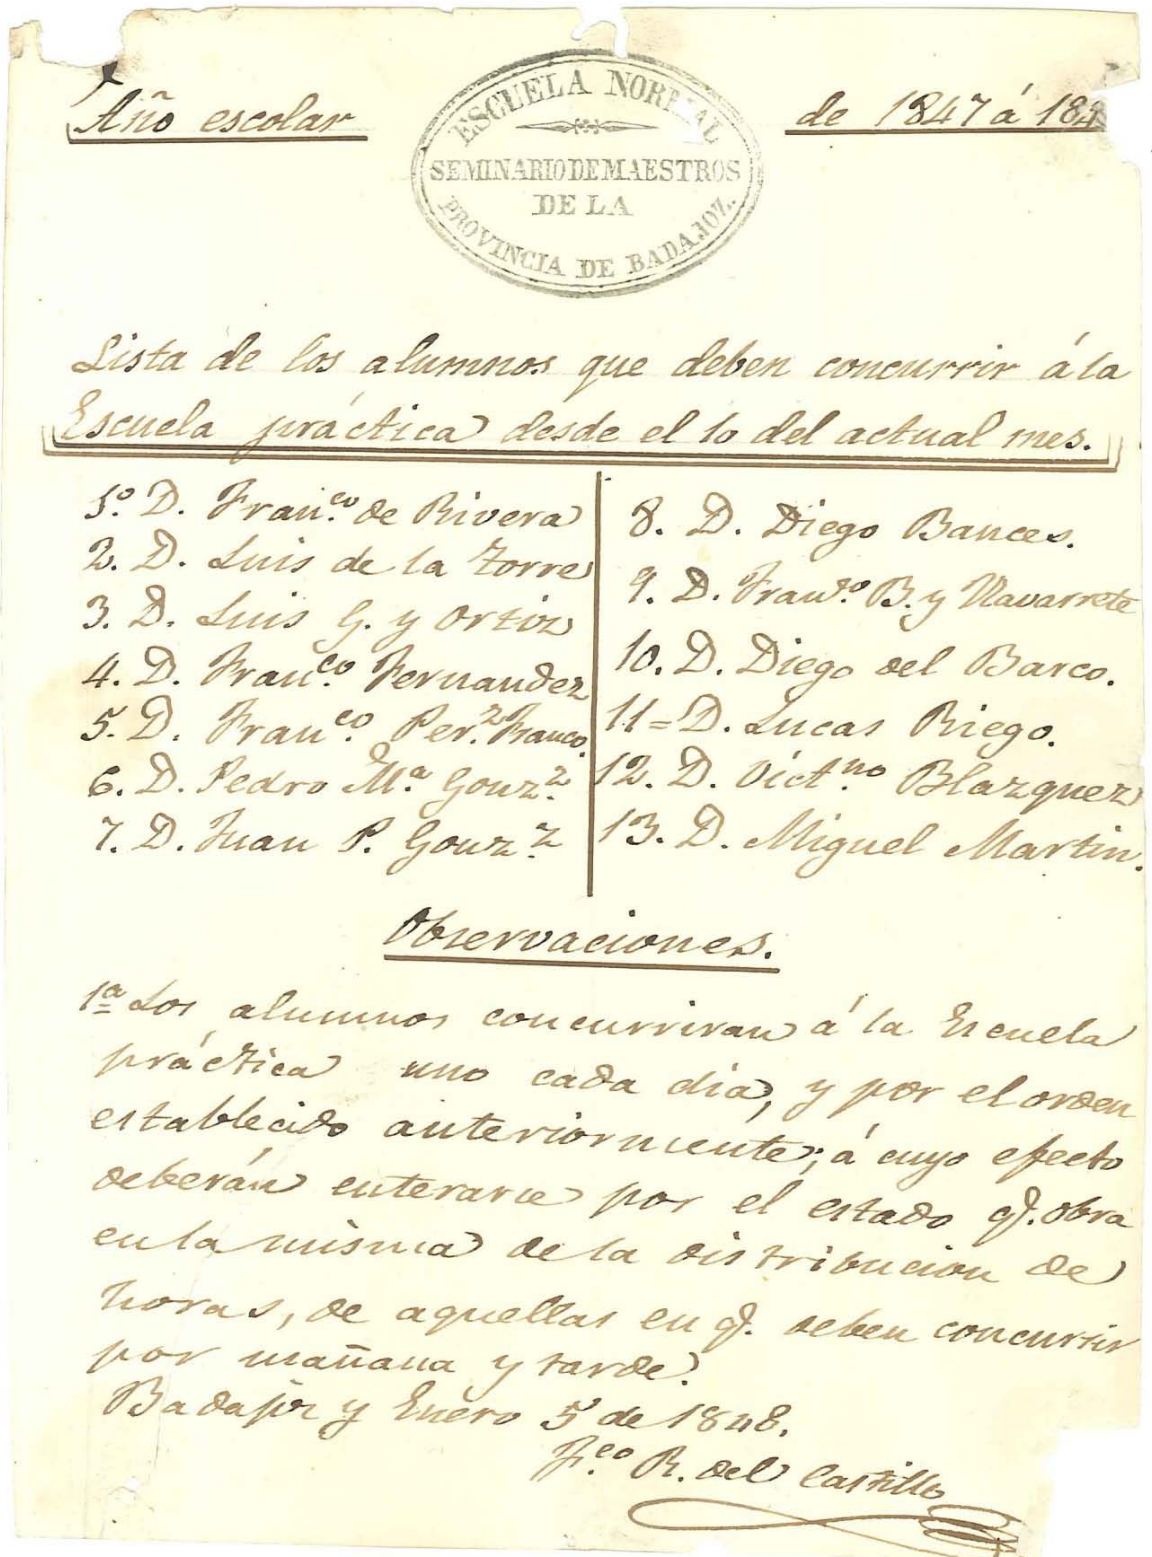 Año escolar
de 1847 á 184
ESCUELA NORMAL
SEMINARIO DE MAESTROS
DE LA
PROVINCIA DE BADAJOZ.
Lista de los alumnos que deben concurrir á la
Escuela práctica desde el 10 del actual mes.
1º. D. Franco. de Rivera
2. D. Luis de la Torre
3. D. Luis G. y Ortiz
4. D. Franco. Fernandez
5. D. Franco. Perz. Franco.
6. D. Pedro Mª. Gonzz.
7. D. Juan P. Gonzz.
8. D. Diego Bances.
9. D. Franco. B. y Navarrete
10. D. Diego del Barco.
11= D. Lucas Riego.
12. D. Victno. Blazquez
13. D. Miguel Martin.
Observaciones.
1ª Los alumnos concurriran á la Escuela
práctica uno cada dia, y por el orden
establecido anteriormente; á cuyo efecto
deberán enterarse por el estado q. obra
en la misma de la distribucion de
horas, de aquellas en q. deben concurrir
por mañana y tarde.
Badajoz y Enero 5 de 1848.
Fco. R. del Castillo